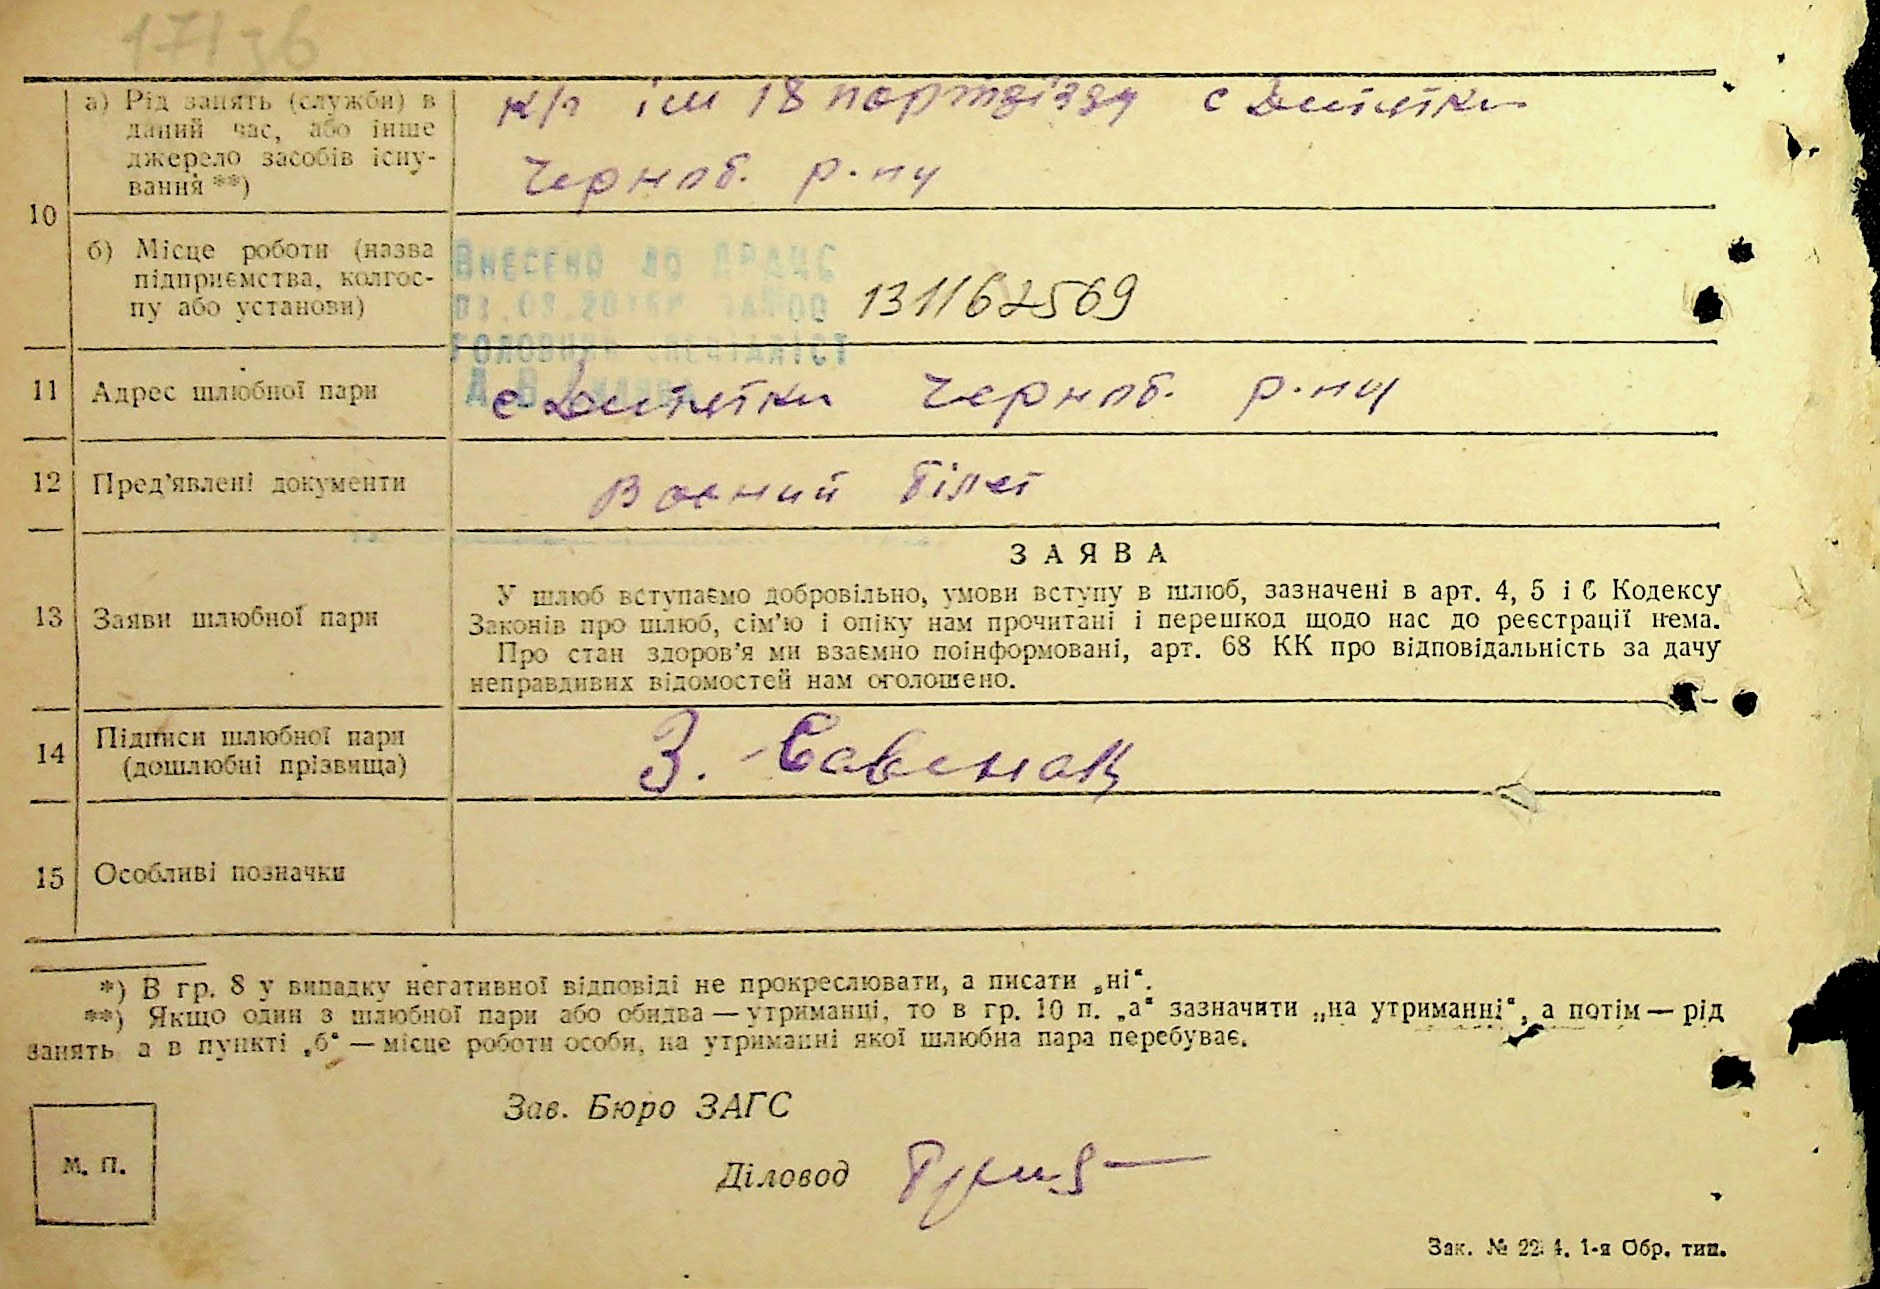 171 зб
а) Рід занять (служби) в
даний час, або інше
джерело засобів існу-
вання **)
к/г ім 18 партзїзду с Дитятки
Черноб. р-ну
10
б) Місце роботи (назва
підприємства, колгос-
пу або установи)
Внесено до ДРАЦС
131162569
Головний спеціаліст
11
Адрес шлюбної пари
с Дитятки Черноб. р-ну
12
Пред'явлені документи
Воєний білет
13
Заяви шлюбної пари
ЗАЯВА
У шлюб вступаємо добровільно, умови вступу в шлюб, зазначені в арт. 4, 5 і 6 Кодексу
Законів про шлюб, сім'ю і опіку нам прочитані і перешкод щодо нас до реєстрації нема.
Про стан здоров'я ми взаємно поінформовані, арт. 68 КК про відповідальність за дачу
неправдивих відомостей нам оголошено.
14
Підписи шлюбної пари
(дошлюбні прізвища)
З. Савенак
15
Особливі позначки
*) В гр. 8 у випадку негативної відповіді не прокреслювати, а писати „ні“.
**) Якщо один з шлюбної пари або обидва — утриманці, то в гр. 10 п. „а“ зазначити „на утриманні“, а потім — рід
занять а в пункті „б“ — місце роботи особи, на утриманні якої шлюбна пара перебуває.
Зав. Бюро ЗАГС
М. П.
Діловод
Зак. № 22 4. 1-я Обр. тип.